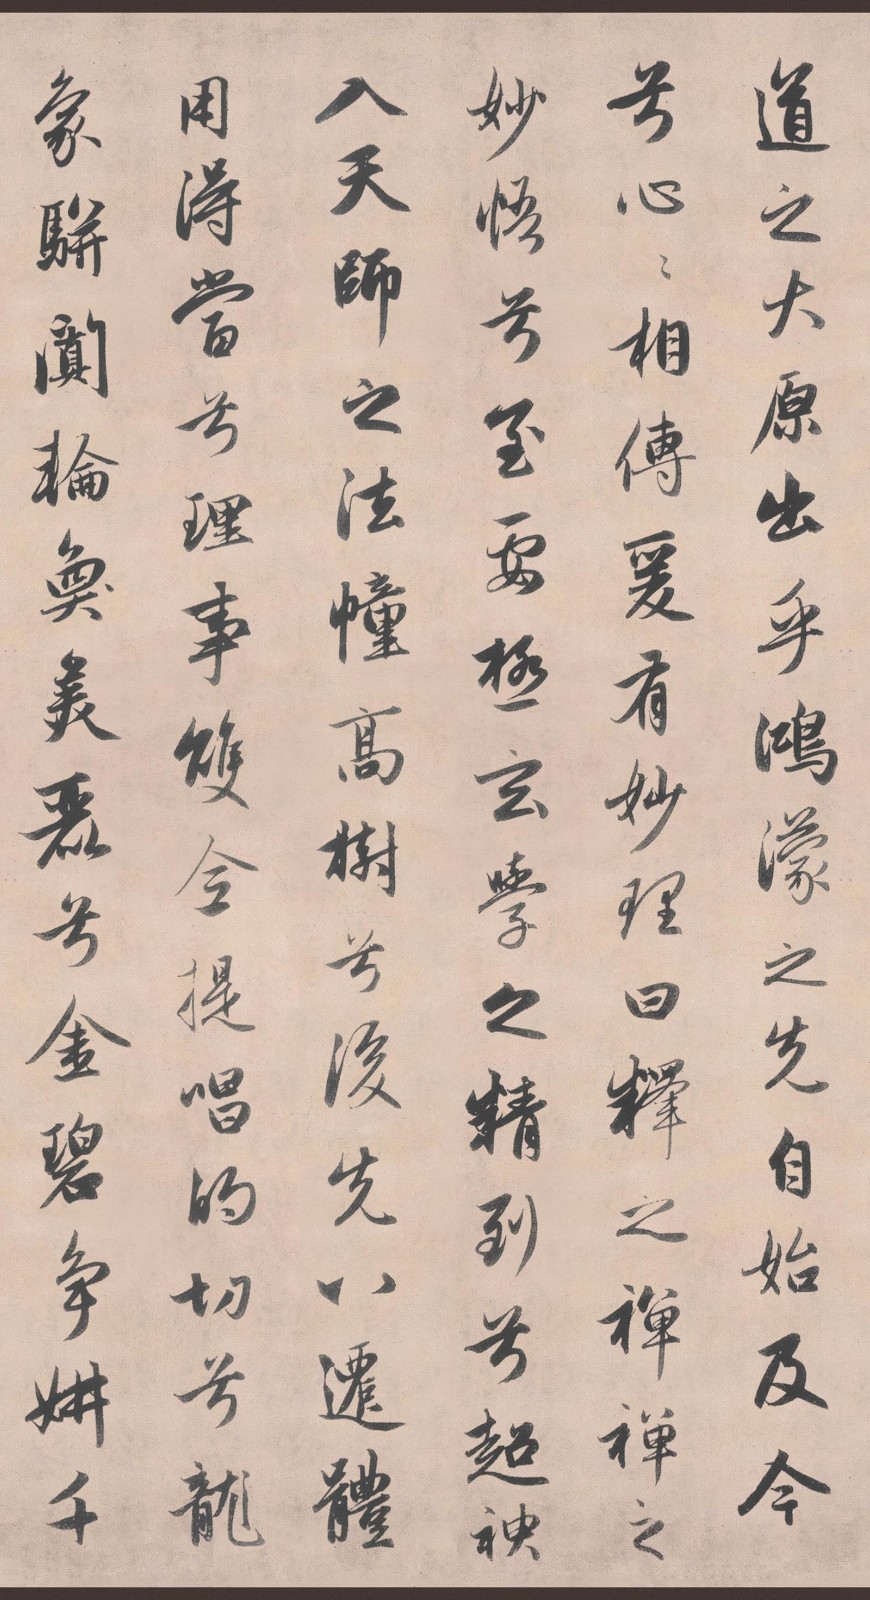 道之大原出乎鴻濛之先自始及今
兮心〻相傳爰有妙理曰釋之禪禪之
妙悟兮至要極玄學之精到兮超
入天師之法幢高樹兮後先以遷體
用得當兮理事雙全提唱的切兮龍
象駢闐輪奐美麗兮金碧爭妍千